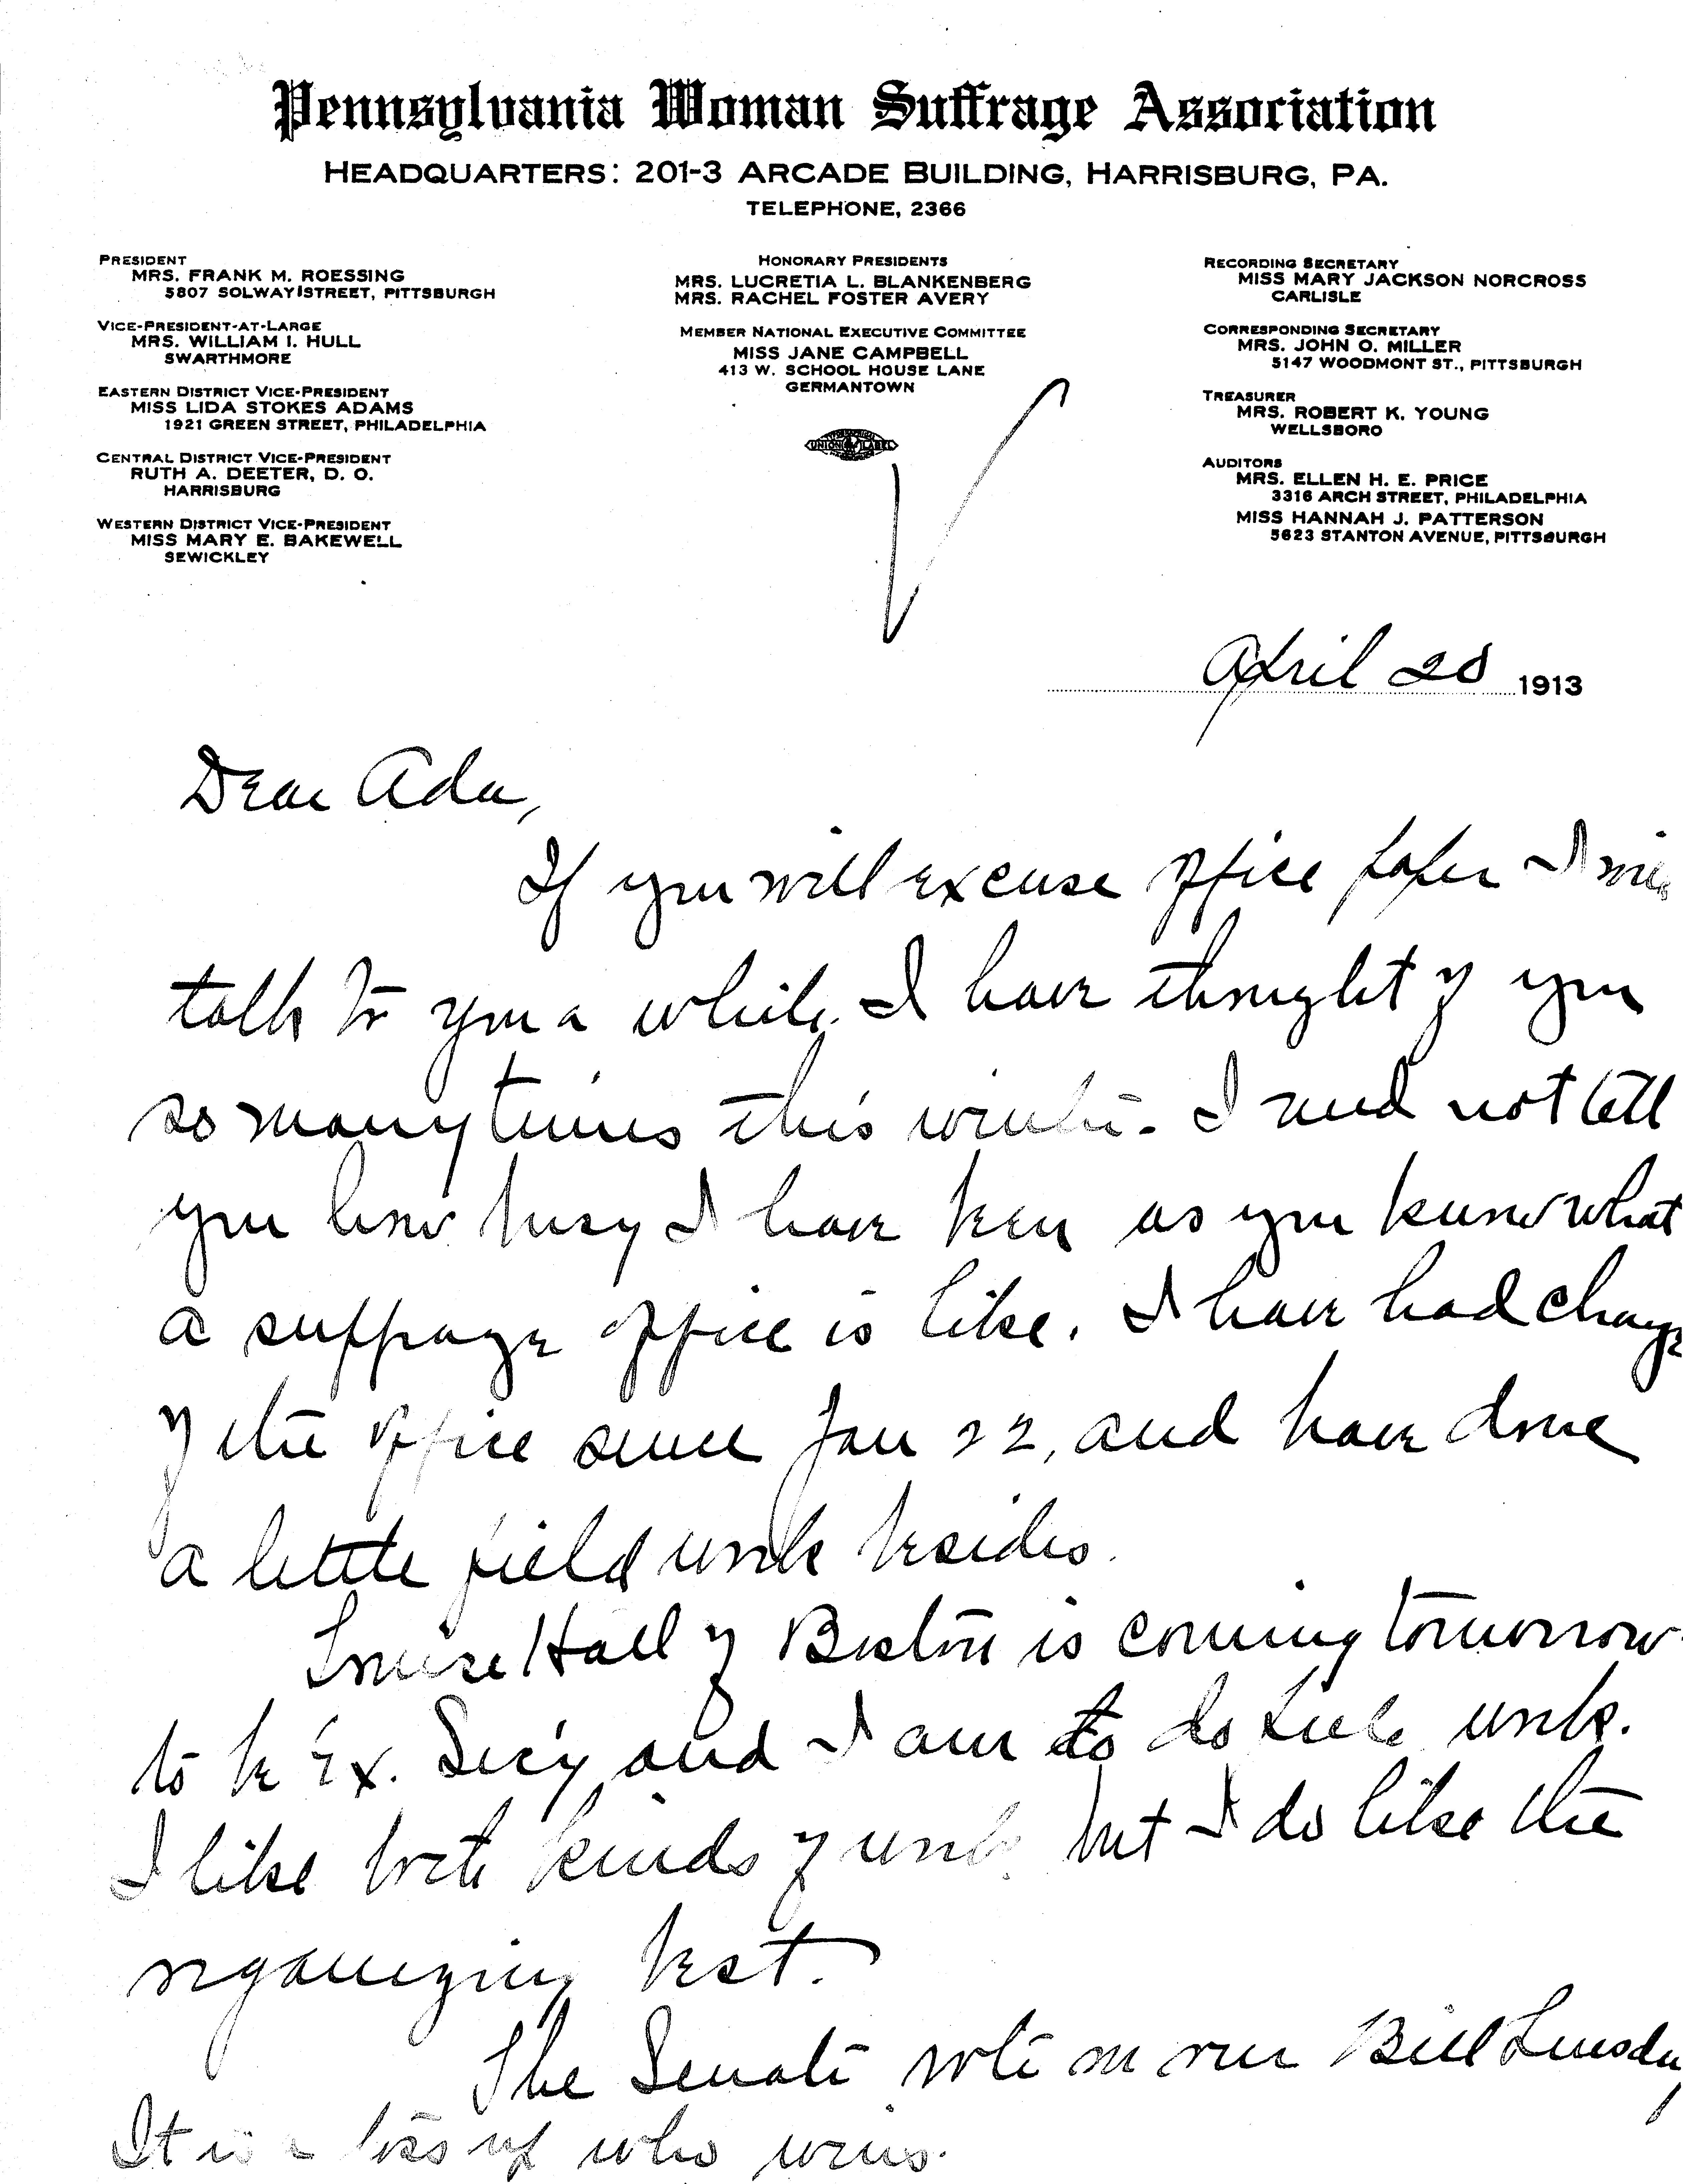 Pennsylvania Woman Suffrage Association
HEADQUARTERS: 201-3 ARCADE BUILDING, HARRISBURG, PA.
TELEPHONE, 2366
PRESIDENT
MRS. FRANK M. ROESSING
5807 SOLWAY STREET, PITTSBURGH
VICE-PRESIDENT-AT-LARGE
MRS. WILLIAM I. HULL
SWARTHMORE
EASTERN DISTRICT VICE-PRESIDENT
MISS LIDA STOKES ADAMS
1921 GREEN STREET, PHILADELPHIA
CENTRAL DISTRICT VICE-PRESIDENT
RUTH A. DEETER, D. O.
HARRISBURG
WESTERN DISTRICT VICE-PRESIDENT
MISS MARY E. BAKEWELL
SEWICKLEY
HONORARY PRESIDENTS
MRS. LUCRETIA L. BLANKENBERG
MRS. RACHEL FOSTER AVERY
MEMBER NATIONAL EXECUTIVE COMMITTEE
MISS JANE CAMPBELL
413 W. SCHOOL HOUSE LANE
GERMANTOWN
UNION LABEL
RECORDING SECRETARY
MISS MARY JACKSON NORCROSS
CARLISLE
CORRESPONDING SECRETARY
MRS. JOHN O. MILLER
5147 WOODMONT ST., PITTSBURGH
TREASURER
MRS. ROBERT K. YOUNG
WELLSBORO
AUDITORS
MRS. ELLEN H. E. PRICE
3316 ARCH STREET, PHILADELPHIA
MISS HANNAH J. PATTERSON
5623 STANTON AVENUE, PITTSBURGH
April 20 1913
Dear Ada,
If you will excuse office paper I
talk to you a while. I have thought of you
so many times this winter. I need not tell
you how busy I have been as you know what
a suffrage office is like. I have had charge
of the office since Jan 22, and have done
a little field work besides.
Louise Hall of Boston is coming tomorrow
to be Ex. Sec'y and I am to do field work.
I like both kinds of work but I do like the
organizing best.
The Senate vote on our Bill Tuesday
It is a toss up who wins.